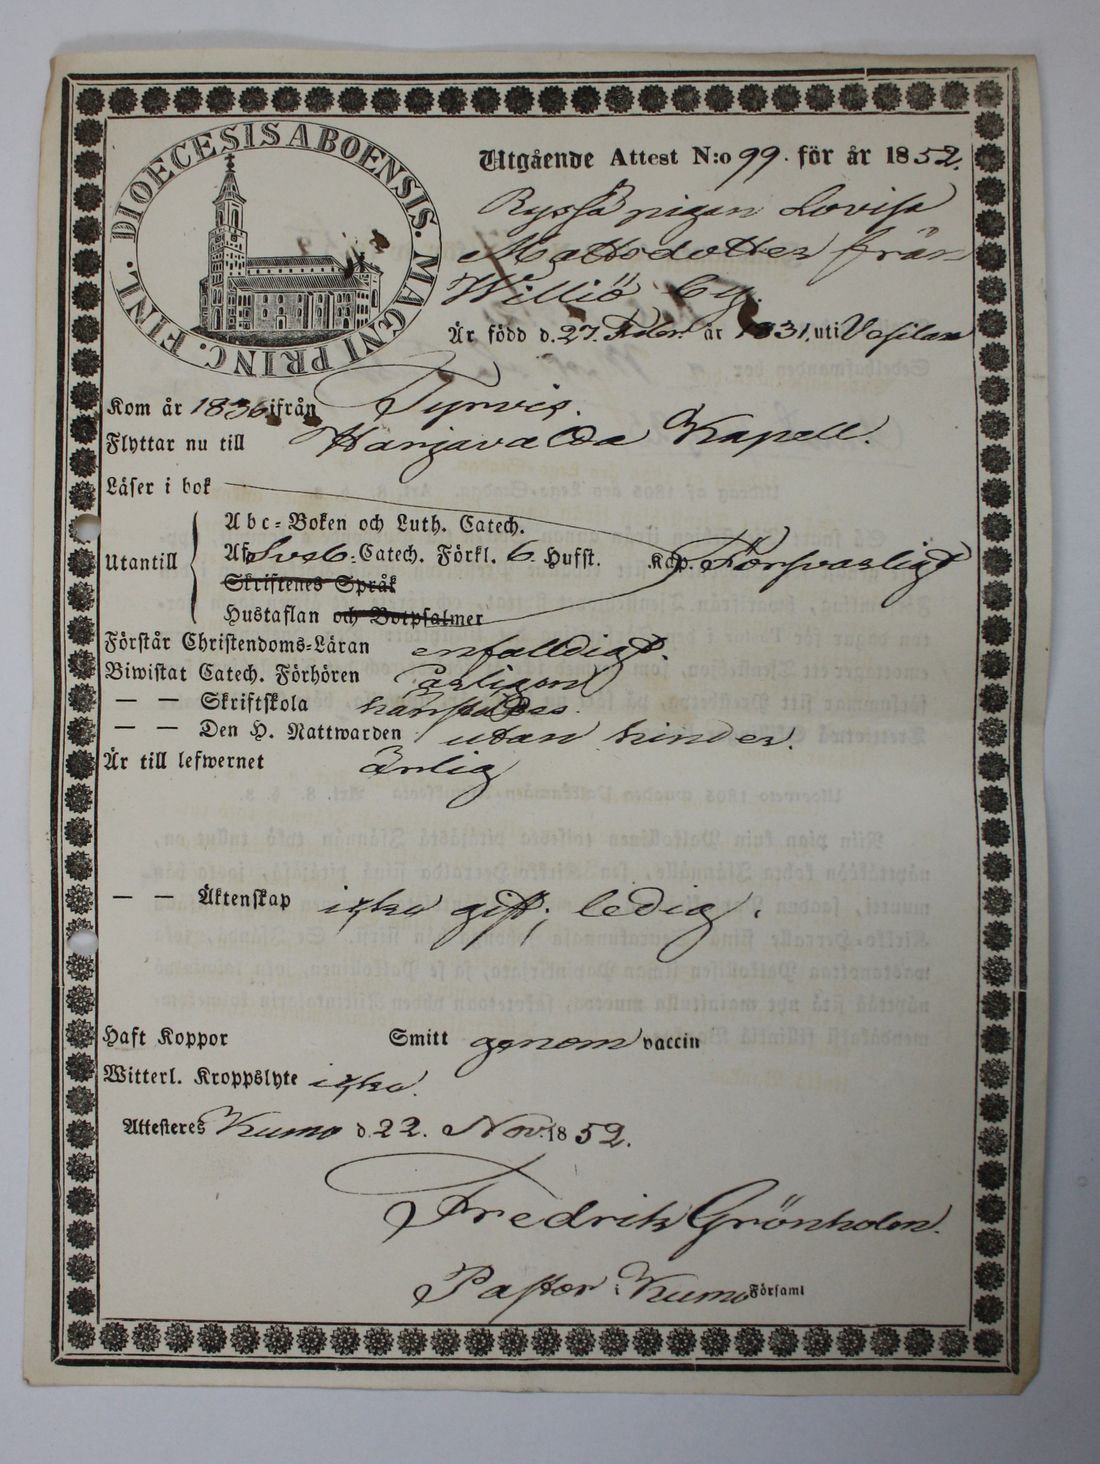 DIOECESIS ABOENSIS. MAGNI PRINC. FINL.
Utgående Attest N:o 99. för år 1852.
pigan Lovisa
Mattsdotter från
Williö by.
Är född d. 27. Febr. år 1831, uti
Kom år 1836 ifrån Tyrvis.
Flyttar nu till Harjavalda Kapell.
Läser i bok
Utantill
Abc-Boken och Luth. Catech.
Af Sveb. Catech. Förkl. 6 Hufst. Kap. Försvarligt
Skriftenes Språk
Hustaflan och Botpsalmer
Förstår Christendoms-Läran enfalldigt.
Biwistat Catech. Förhören årligen
— — Skriftskola
— — Den H. Nattwarden utan hinder.
Är till lefwernet Ärlig
— — Äktenskap icke gift, ledig.
Haft Koppor Smitt genom vaccin
Witterl. Kroppslyte icke.
Attesteres Kumo d. 22. Nov. 1852.
Fredrik Grönholm.
Pastor i Kumo Församl